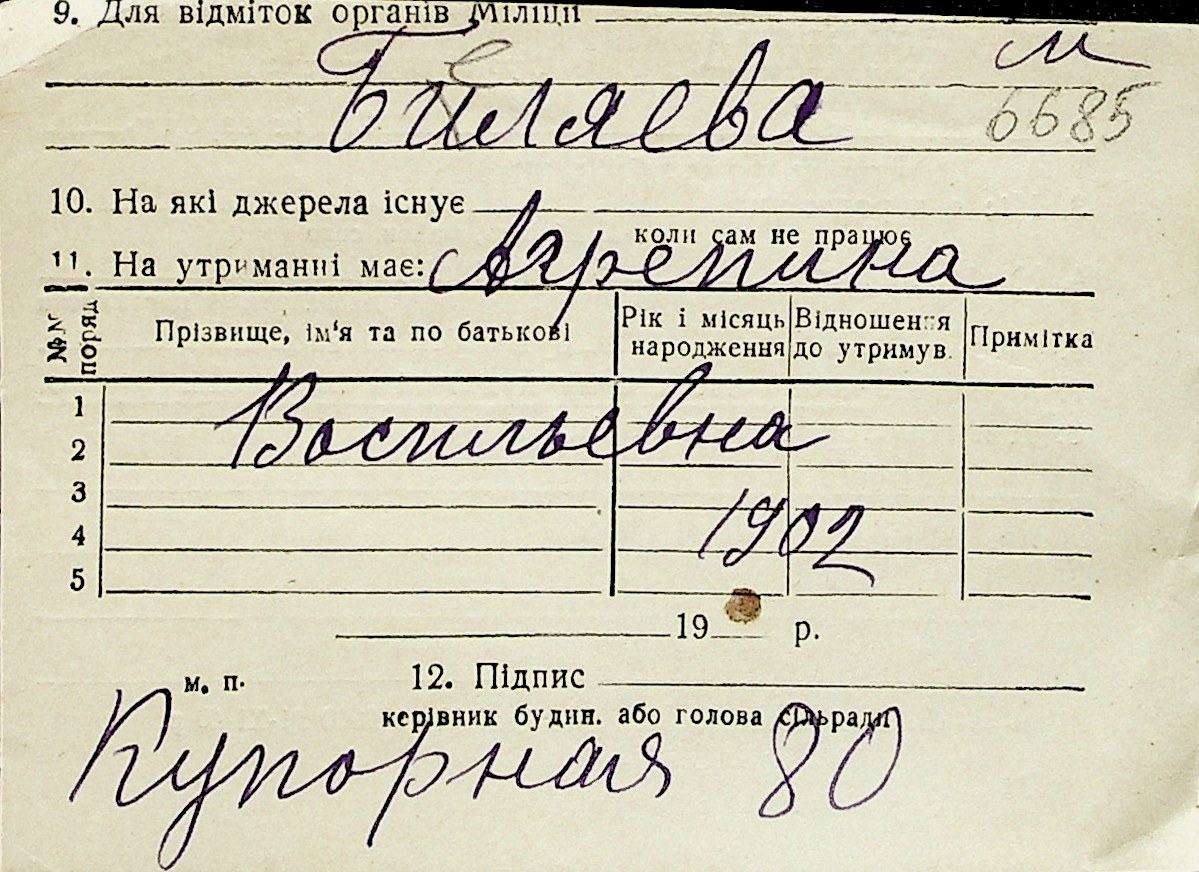 9. Для відміток органів Міліції
м
Биляева
6685
10. На які джерела існує
коли сам не працює
11. На утриманні має:
Агрепина
№№ поряд
Прізвище, ім'я та по батькові
Рік і місяць народження
Відношення до утримув.
Примітка
1
Васильевна
2
3
1902
4
5
19 р.
м. п.
12. Підпис
керівник будин. або голова сільради
Купорная 80